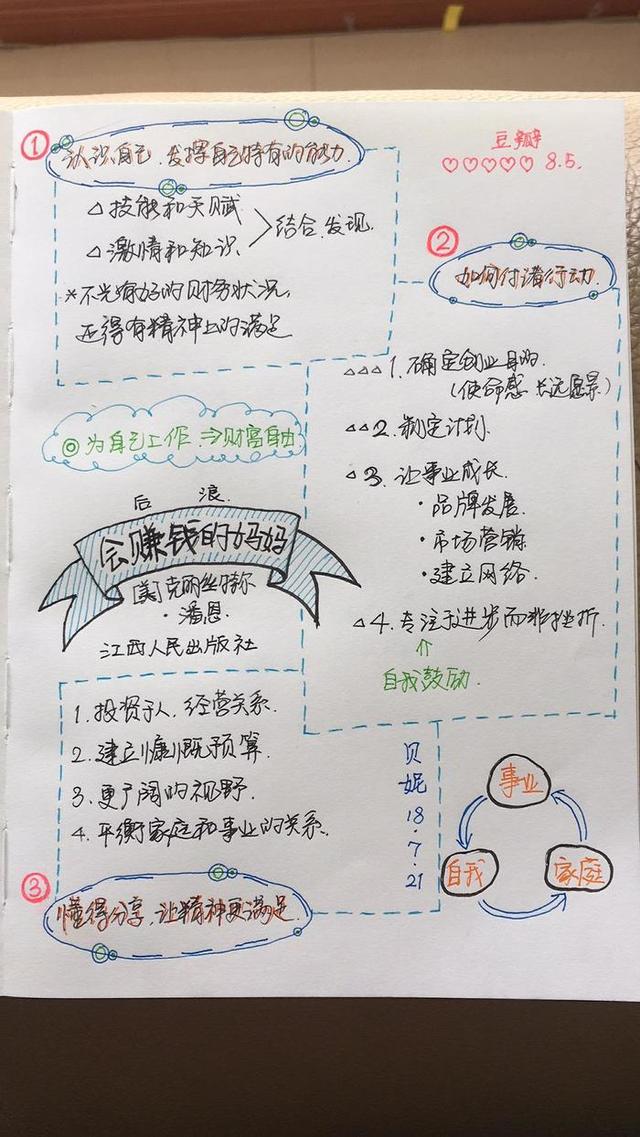 ① 认识自己、发挥自己特有的能力.
△ 技能和天赋
△ 激情和知识.
结合.发现.
*不光有好的财务状况,
还得有精神上的满足
豆瓣
♡♡♡♡♡ 8.5.
② 如何付诸行动.
△△△1.确定创业目的.
(使命感 长远愿景)
△△2.制定计划.
△3.让事业成长.
·品牌发展.
·市场营销.
·建立网络.
△4.专注于进步而非挫折.
⇑
自我鼓励.
◎为自己工作⇒财富自由
后 浪.
会赚钱的妈妈
[美]克丽丝特尔
·潘恩.
江西人民出版社
1.投资于人,经营关系.
2.建立慷慨预算.
3.更广阔的视野.
4.平衡家庭和事业的关系.
③ 懂得分享,让精神更满足.
贝妮 18·7·21
事业
自我
家庭